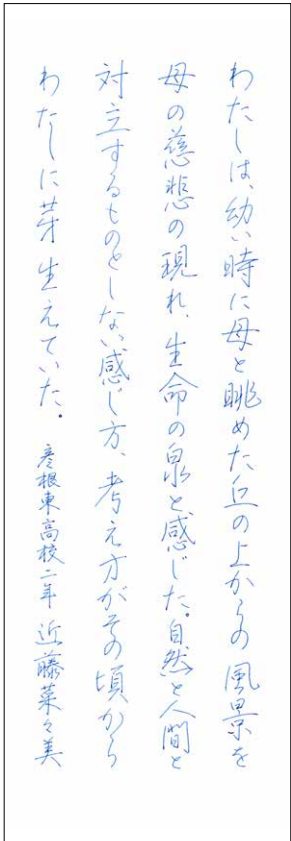 わたしは、幼い時に母と眺めた丘の上からの風景を
母の慈悲の現れ、生命の泉と感じた。自然と人間と
対立するものとしない感じ方、考え方がその頃から
わたしに芽生えていた。 彦根東高校二年 近藤菜々美